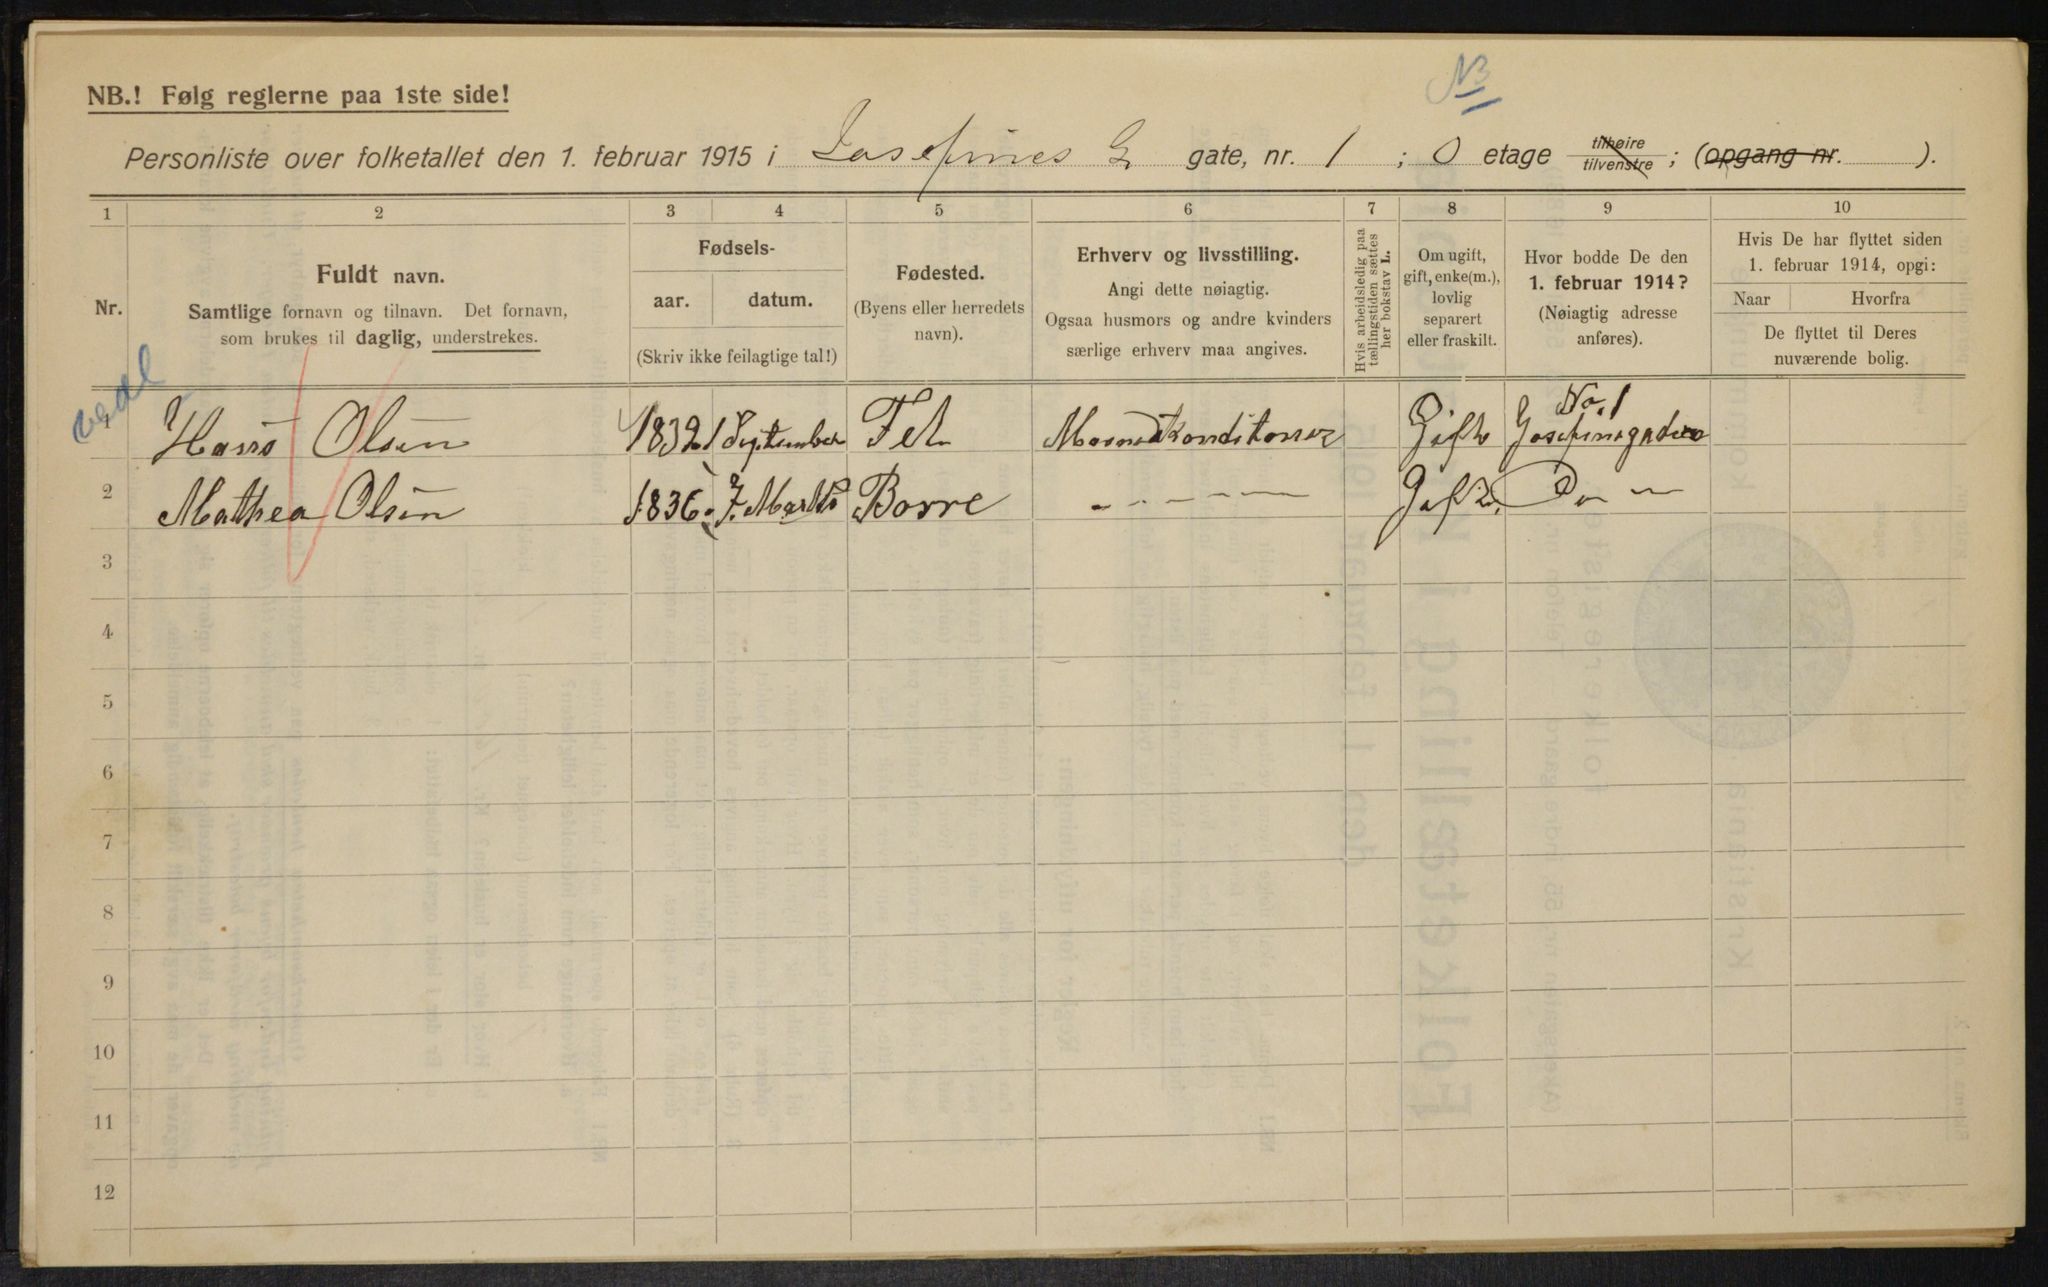 NB
NB.! Følg reglerne paa 1ste side!
Personliste over folketallet den 1. februar 1915 i Josefines G gate, nr. 1 ; 0 etage tilhøire tilvenstre ; (opgang nr. ).
1 2 3 4 5 6 7 8 9 10
Nr.
Fuldt navn.
Samtlige fornavn og tilnavn. Det fornavn,
som brukes til daglig, understrekes.
Fødsels-
aar. datum.
(Skriv ikke feilagtige tal!)
Fødested.
(Byens eller herredets
navn).
Erhverv og livsstilling.
Angi dette nøiagtig.
Ogsaa husmors og andre kvinders
særlige erhverv maa angives.
Hvis arbeidsledig paa
tællingstiden sættes
her bokstav L.
Om ugift,
gift, enke(m.),
lovlig
separert
eller fraskilt.
Hvor bodde De den
1. februar 1914?
(Nøiagtig adresse
anføres).
Hvis De har flyttet siden
1. februar 1914, opgi:
Naar Hvorfra
De flyttet til Deres
nuværende bolig.
No. 1
1 Hans Olsen 1832 1 September Fet Gift Josefinegaden
2 Mathea Olsen 1836. 7. Marts Borre - - - - - - Gift. Do -
3
4
5
6
7
8
9
10
11
12